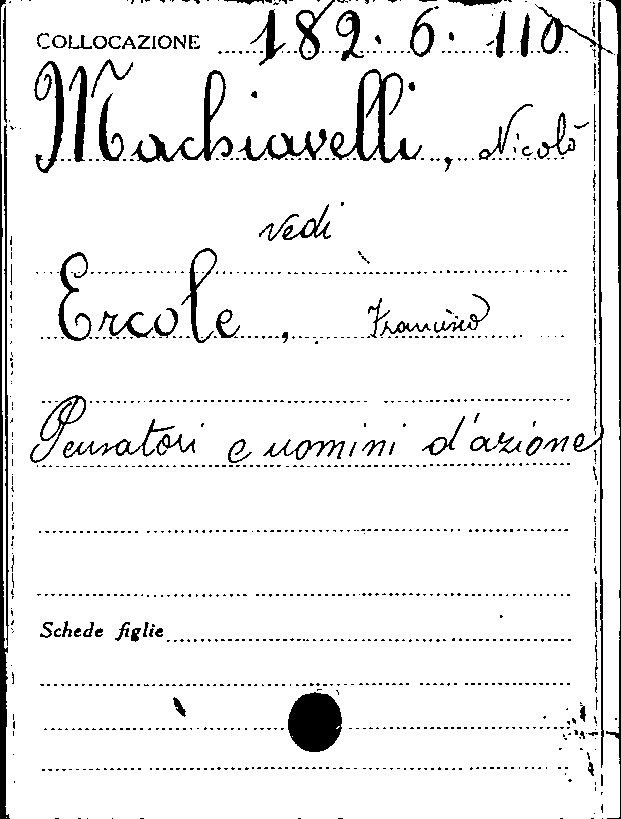 COLLOCAZIONE 182.6.110
Machiavelli, Nicolò
vedi
Ercole, Francesco
Pensatori e uomini d'azione
Schede figlie